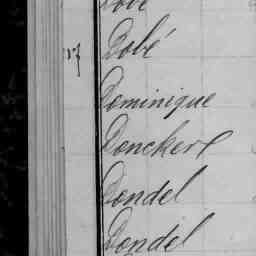 Dobé
Dominique
Donckert
Dondel
Dondel